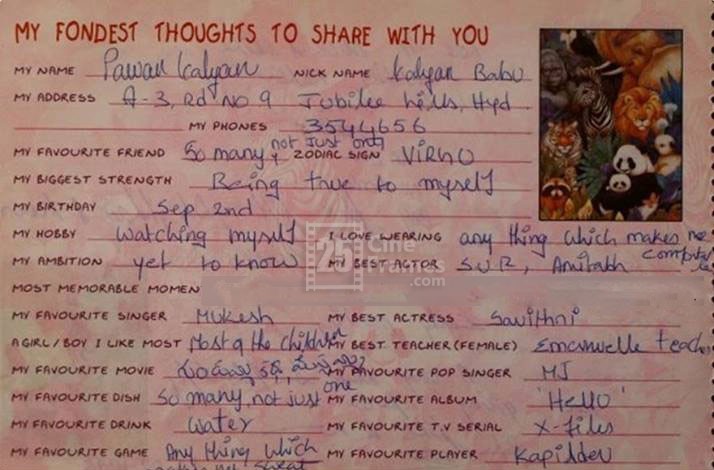 MY FONDEST THOUGHTS TO SHARE WITH YOU
MY NAME Pawan Kalyan NICK NAME Kalyan Babu
MY ADDRESS A-3, Rd No 9 Jubilee hills, Hyd
MY PHONES 3544656
MY FAVOURITE FRIEND So many, not just one ZODIAC SIGN VIRGO
MY BIGGEST STRENGTH Being true to myself
MY BIRTHDAY Sep 2nd
MY HOBBY Watching myself I LOVE WEARING any thing which makes me
MY AMBITION yet to know MY BEST ACTOR S.V.R, Amitabh
MOST MEMORABLE MOMEN
25 Cine Frames.com
MY FAVOURITE SINGER Mukesh MY BEST ACTRESS Savithri
A GIRL/BOY I LIKE MOST Most of the children MY BEST TEACHER (FEMALE) teach
MY FAVOURITE MOVIE MY FAVOURITE POP SINGER MJ
MY FAVOURITE DISH So many, not just one MY FAVOURITE ALBUM 'Hello'
MY FAVOURITE DRINK Water MY FAVOURITE T.V SERIAL X-files
MY FAVOURITE GAME Any thing which MY FAVOURITE PLAYER Kapildev
sweat